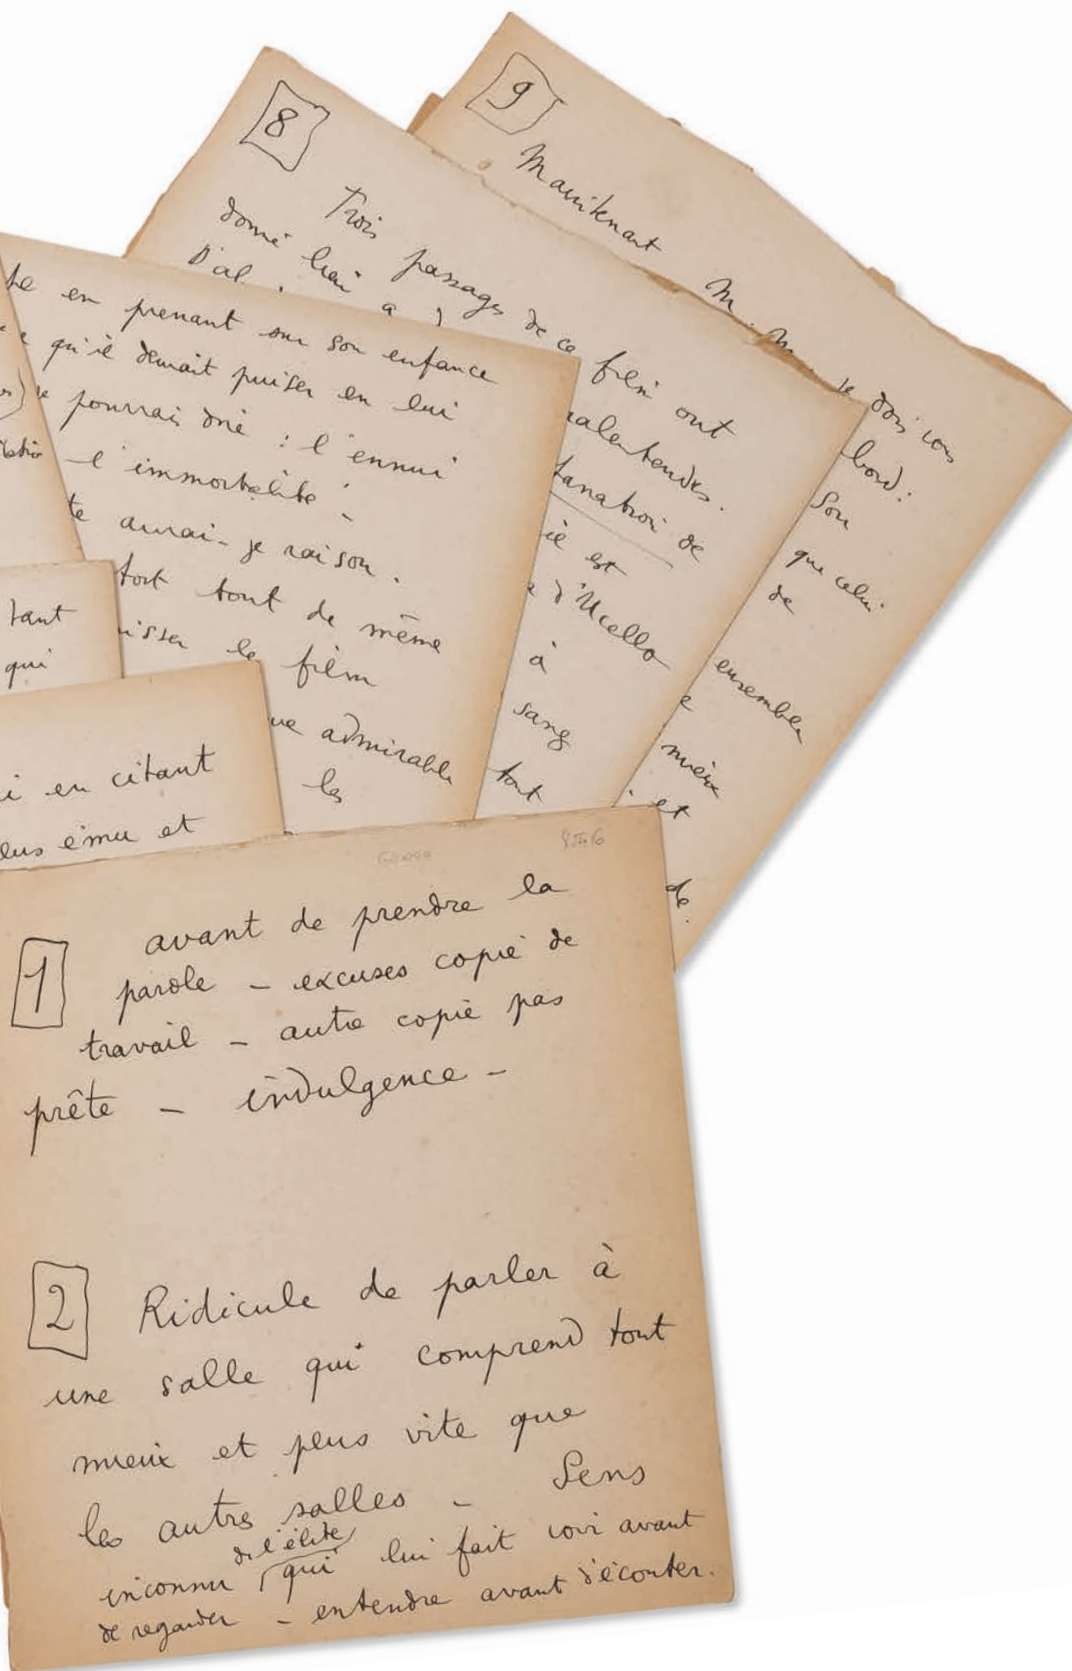 9
Maintenant
M. M je dois vous
bord :
Son
que celui
de
ensemble
e
mieux
et
de.
8
Trois passages de ce film ont
donné lieu à
D'ab
malentendus.
de
ié est
d'Ucello
à
sang
tout
en prenant sur son enfance
qu'il devait puiser en lui
je pourrai dire : l'ennui
l'immortalité -
te aurai-je raison.
tort tout de même
isser le film
ue admirable
les
tant
qui
i en citant
lus ému et
1 avant de prendre la
parole - excuses copie de
travail - autre copie pas
prête - indulgence -
2 Ridicule de parler à
une salle qui comprend tout
mieux et plus vite que
les autres salles - Sens
inconnu de l'élite qui lui fait voir avant
de regarder - entendre avant d'écouter.